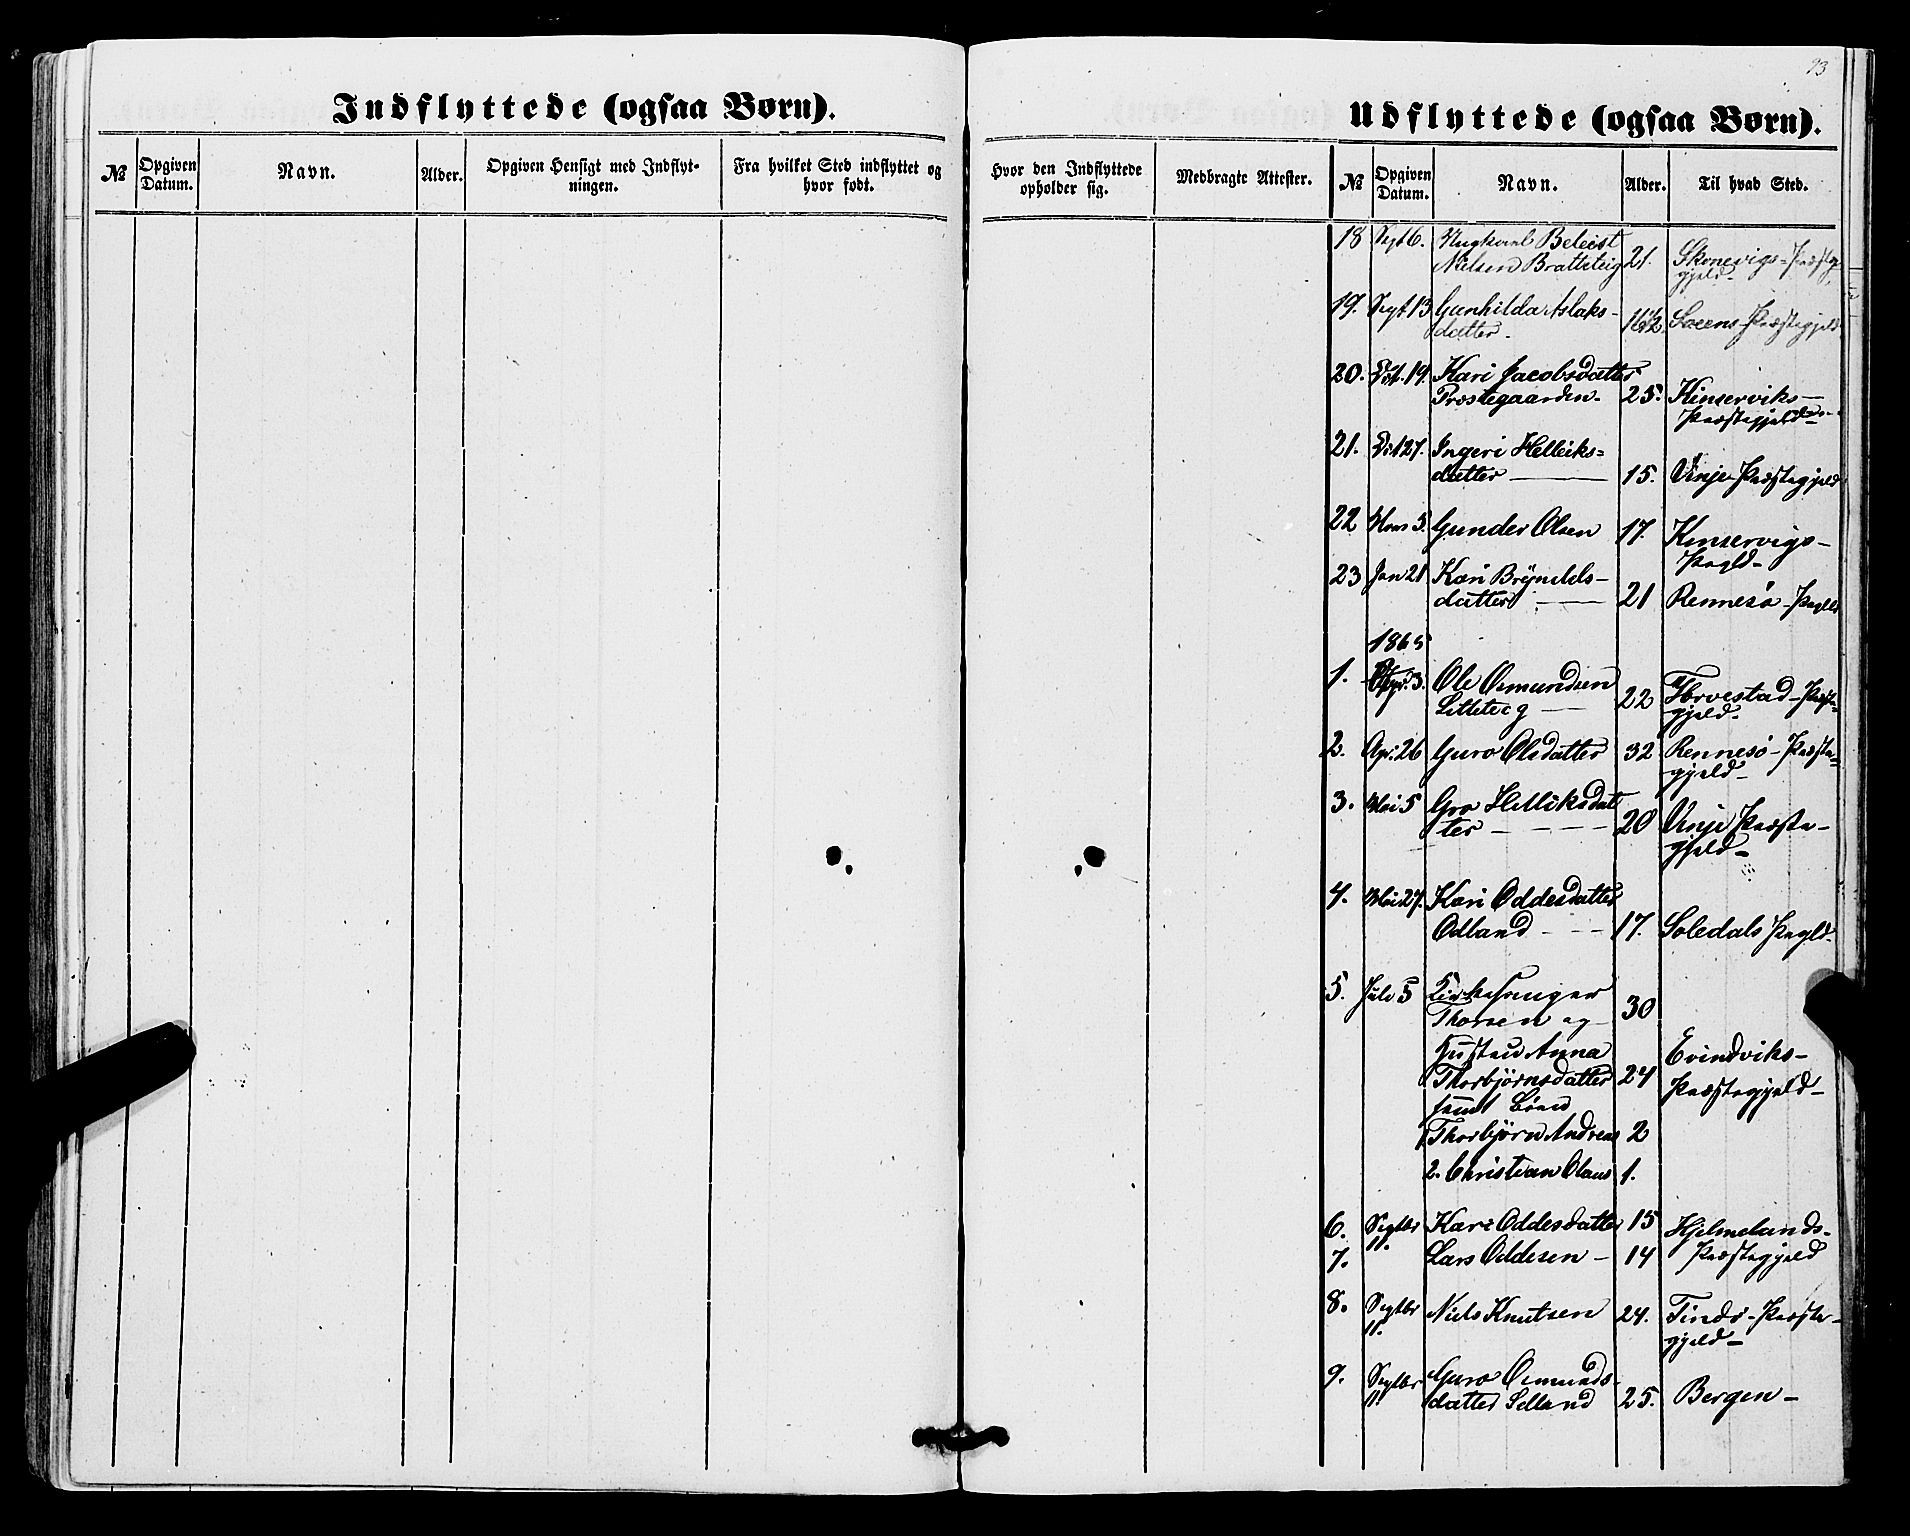 93
Indflyttede (ogsaa Børn).
№ Opgiven Datum. Navn. Alder. Opgiven Hensigt med Indflyt-
ningen. Fra hvilket Sted indflyttet og
hvor født.
Hvor den Indflyttede
opholder sig. Medbragte Attester.
Udflyttede (ogsaa Børn).
№ Opgiven Datum. Navn. Alder. Til hvad Sted.
18 Sept 6.
Nielsen Bratteteig 21. Skonevigs-Præste-
gjeld-
19. Sept 13 Gunhilda Aslaks-
datter- 16½ Soeens-Præstegjeld
20. Oct. 19. Kari Jacobsdatter
Præstegaarden- 25. Kinserviks-
Præstegjeld-
21. Oct 27. Ingeri Helleiks=
datter 15. Vinje-Præstegjeld
22 Nov 5. Gunder Olsen 17. Kinservigs-
Prgld-
23 Jan 21 Kari Brynilds-
datter 21 Rennesø-Prgld
1865
1. Apr. 3. Ole Osmundsen
22 Torvestad-Præste-
gjeld.
2. Apr: 26 Guro Olsdatter 32 Rennesö-Præste-
gjeld-
3. Mai 5 Gro Helliksdat
ter 20 Vinje Præste-
gjeld-
4. Mai 27. Kari Oddesdatter
Odland 17. Soledals Prgld.
5. Juli 5 Kirkesanger
Thorsen og 30
Hustru Anna
Thorbjörnsdatter 24 Evindviks-
Præstegjeld-
samt Börn
1 Thorbjörn Andreas 2
2. Christian Olaus 1.
6. Septbr
11. Kari Oddesdatter 15 Hjelmelands-
7. Lars Oddesen - 14 Præstegjeld
8. Septbr
11. Niels Knutsen 24. Tinds-Præste-
gjeld-
9. Septbr
11. Guro Osmunds-
datter Selland 25. Bergen-